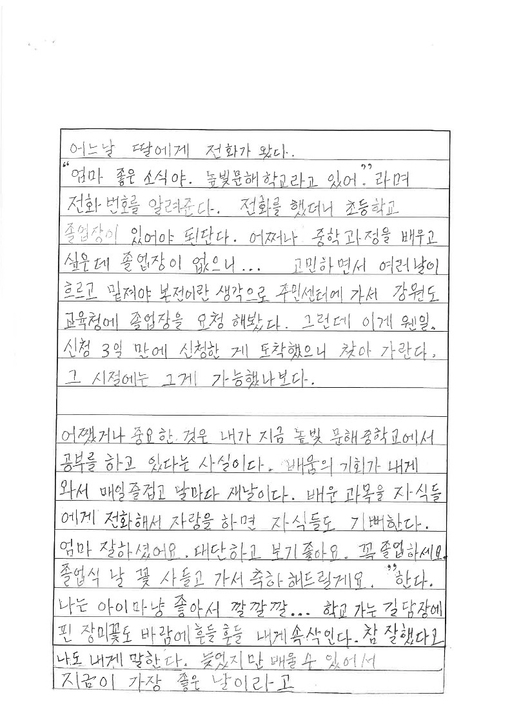 어느날 딸에게 전화가 왔다.
"엄마 좋은 소식야. 늘빛문해학교라고 있어." 라며
전화 번호를 알려준다. 전화를 했더니 초등학교
졸업장이 있어야 된단다. 어쩌나 중학과정을 배우고
싶은데 졸업장이 없으니... 고민하면서 여러날이
흐르고 밑져야 본전이란 생각으로 주민센터에 가서 강원도
교육청에 졸업장을 요청 해봤다. 그런데 이게 웬일.
신청 3일 만에 신청한 게 도착했으니 찾아 가란다.
그 시절에는 그게 가능했나보다.
어쨌거나 중요한 것은 내가 지금 늘빛 문해중학교에서
공부를 하고 있다는 사실이다. 배움의 기회가 내게
와서 매일 즐겁고 날마다 새날이다. 배운 과목을 자식들
에게 전화해서 자랑을 하면 자식들도 기뻐한다.
엄마 잘하셨어요. 대단하고 보기좋아요. 꼭 졸업하세요.
졸업식 날 꽃 사들고 가서 축하 해드릴게요. "한다.
나는 아이마냥 좋아서 깔깔깔... 학교 가는 길 담장에
핀 장미꽃도 바람에 후들 후들 내게 속삭인다. 참 잘했다고
나도 내게 말한다. 늦었지만 배울 수 있어서
지금이 가장 좋은 날이라고